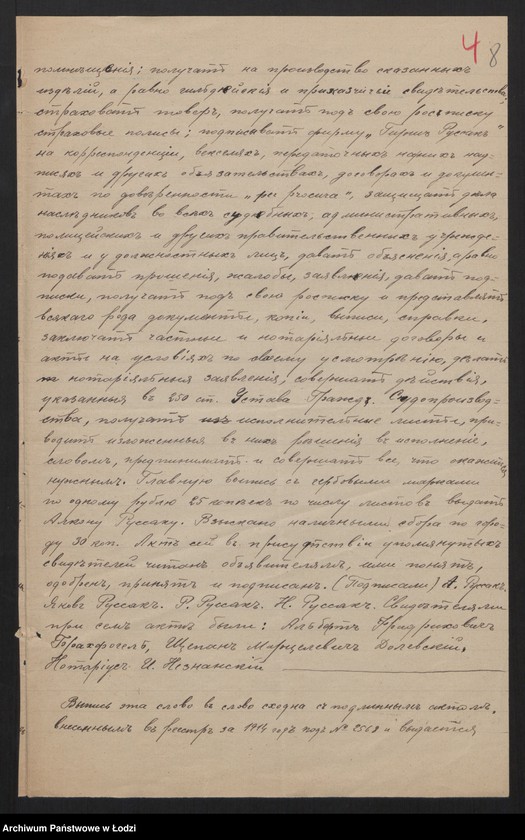 4 8
помѣщенія; получать на производство сказанныхъ
издѣлій, а равно гильдейскія и приказчичіе свидѣтельства,
страховать товаръ, получать подъ свою росписку
страховые полисы; подписывать фирму „Гиршъ Руссакъ"
на корреспонденціи, векселяхъ, передаточныхъ на нихъ над-
писяхъ и другихъ обязательствахъ, договорахъ и докумен-
тахъ по довѣренности „per procura", защищать дѣла
наслѣдниковъ во всѣхъ судебныхъ, административныхъ,
полицейскихъ и другихъ правительственныхъ учрежде-
ніяхъ и у должностныхъ лицъ, давать объясненія, а равно
подавать прошенія, жалобы, заявленія, давать под-
писки, получать подъ свою росписку и представлять
всякаго рода документы, копіи, выписи, справки,
заключать частные и нотаріальные договоры и
акты на условіяхъ по своему усмотрѣнію, дѣлать
нотаріальныя заявленія; совершать дѣйствія,
указанныя въ 250 ст. Устава Гражд. Судопроизвод-
ства, получать исполнительные листы, при-
водить изложенныя въ нихъ рѣшенія въ исполненіе,
словомъ, предпринимать и совершать все, что окажется
нужнымъ. Главную выпись съ гербовыми марками
по одному рублю 25 копѣекъ по числу листовъ выдать
Руссаку. Взыскано наличными сбора по горо-
ду 30 коп. Актъ сей въ присутствіи упомянутыхъ
свидѣтелей читанъ объявителямъ, ими понятъ,
одобренъ, принятъ и подписанъ. (Подписали) А. Руссакъ.
Яковъ Руссакъ. Р. Руссакъ. Н. Руссакъ. Свидѣтелями
при семъ актѣ были: Альбертъ Фридриховичъ
Щепанъ Марцелевичъ Долевскій.
Нотаріусъ И. Незнанскій
Выпись эта слово въ слово сходна съ подлиннымъ актомъ,
внесеннымъ въ реестръ за 1914 годъ подъ № 2562 и выдается
Archiwum Państwowe w Łodzi